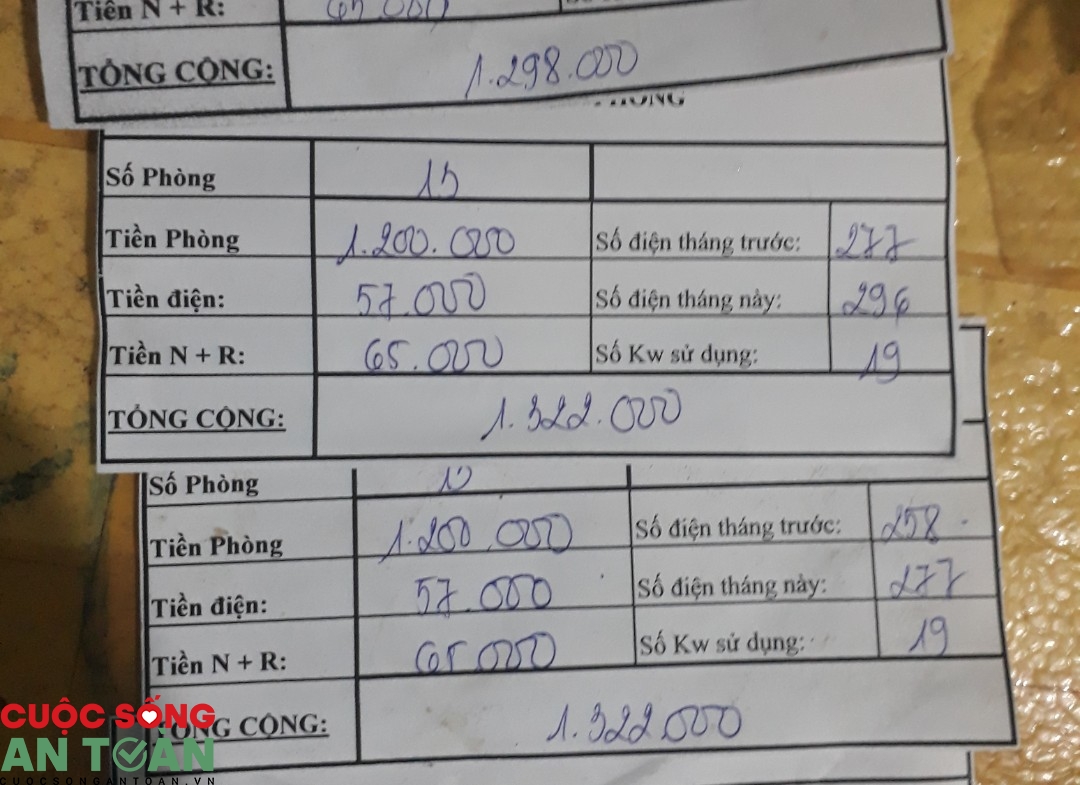 Tiền N + R: 65.000
TỔNG CỘNG: 1.298.000
PHÒNG
Số Phòng 15
Tiền Phòng 1.200.000 Số điện tháng trước: 277
Tiền điện: 57.000 Số điện tháng này: 296
Tiền N + R: 65.000 Số Kw sử dụng: 19
TỔNG CỘNG: 1.322.000
Số Phòng
Tiền Phòng 1.200.000 Số điện tháng trước: 258
Tiền điện: 57.000 Số điện tháng này: 277
Tiền N + R: 65.000 Số Kw sử dụng: 19
TỔNG CỘNG: 1.322.000
CUỘC SỐNG
AN TOÀN
CUOCSONGANTOAN.VN